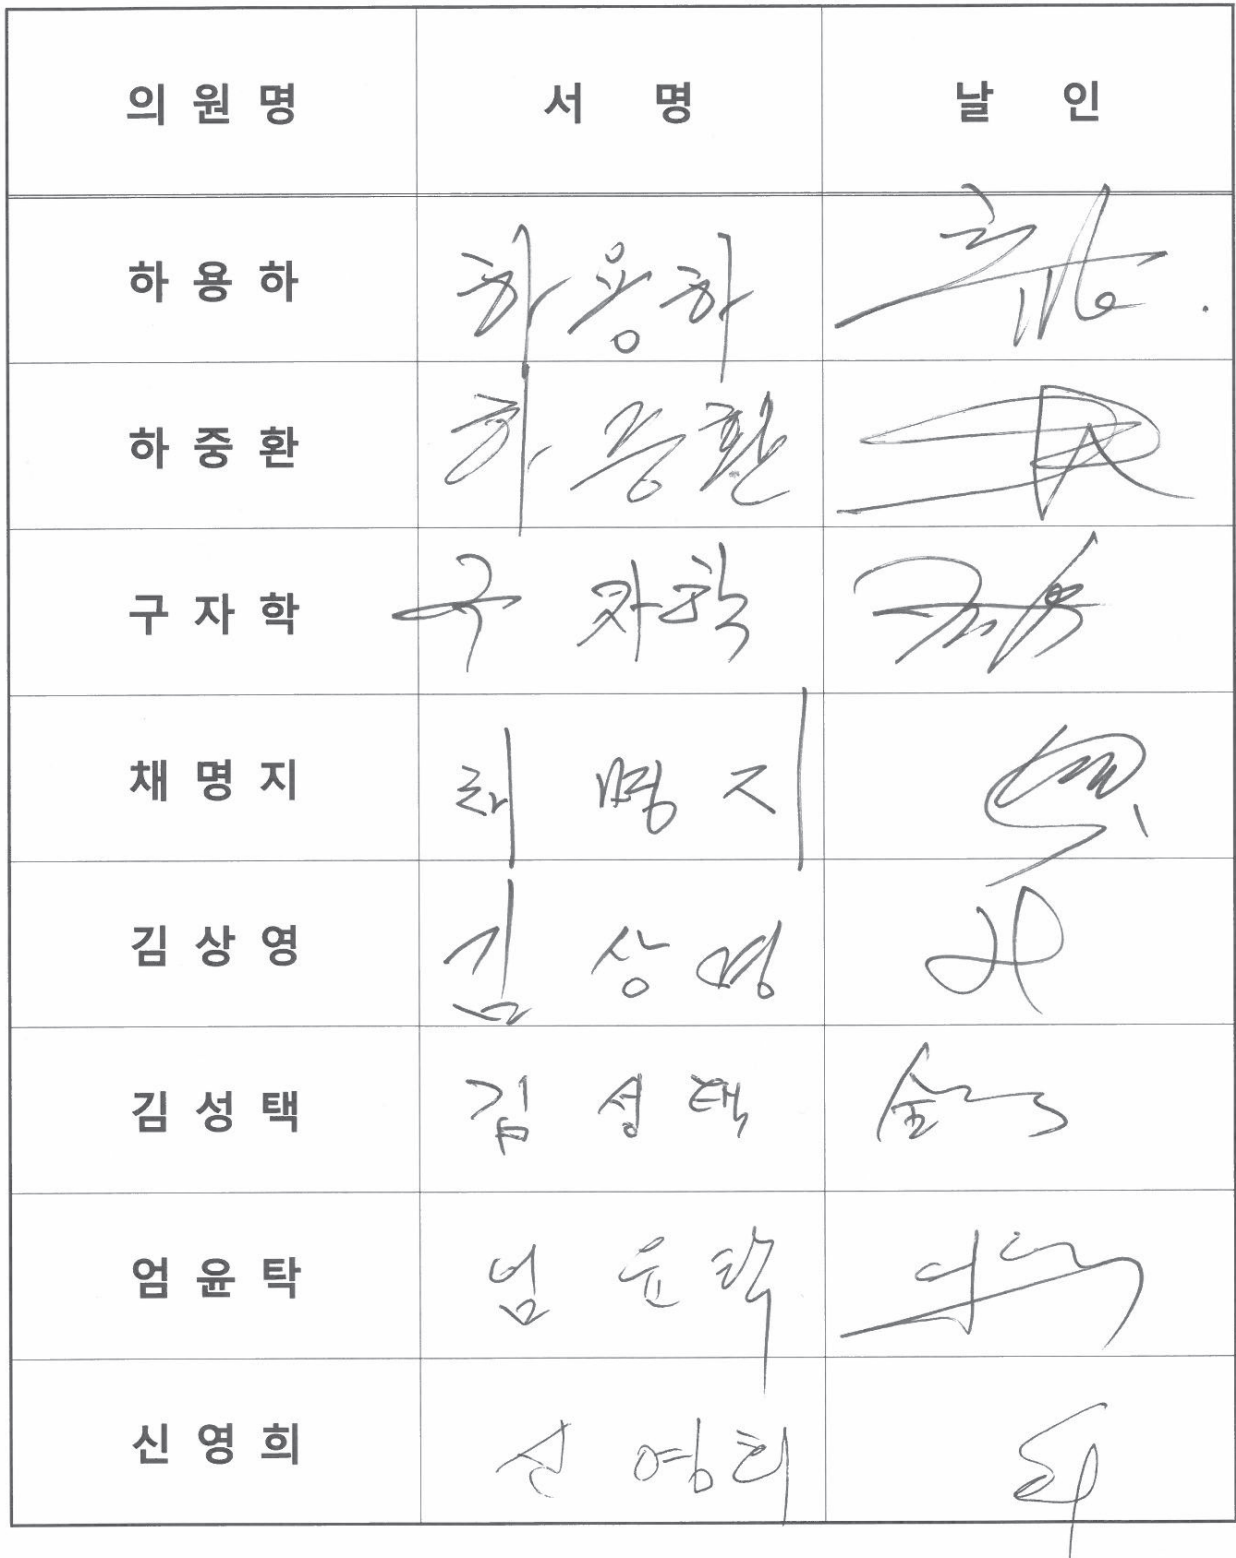 의원명 서명 날인
하용하 하용하
하중환 하중환
구자학 구자학
채명지 채명지
김상영 김상영
김성택 김성택
엄윤탁 엄윤탁
신영희 신영희